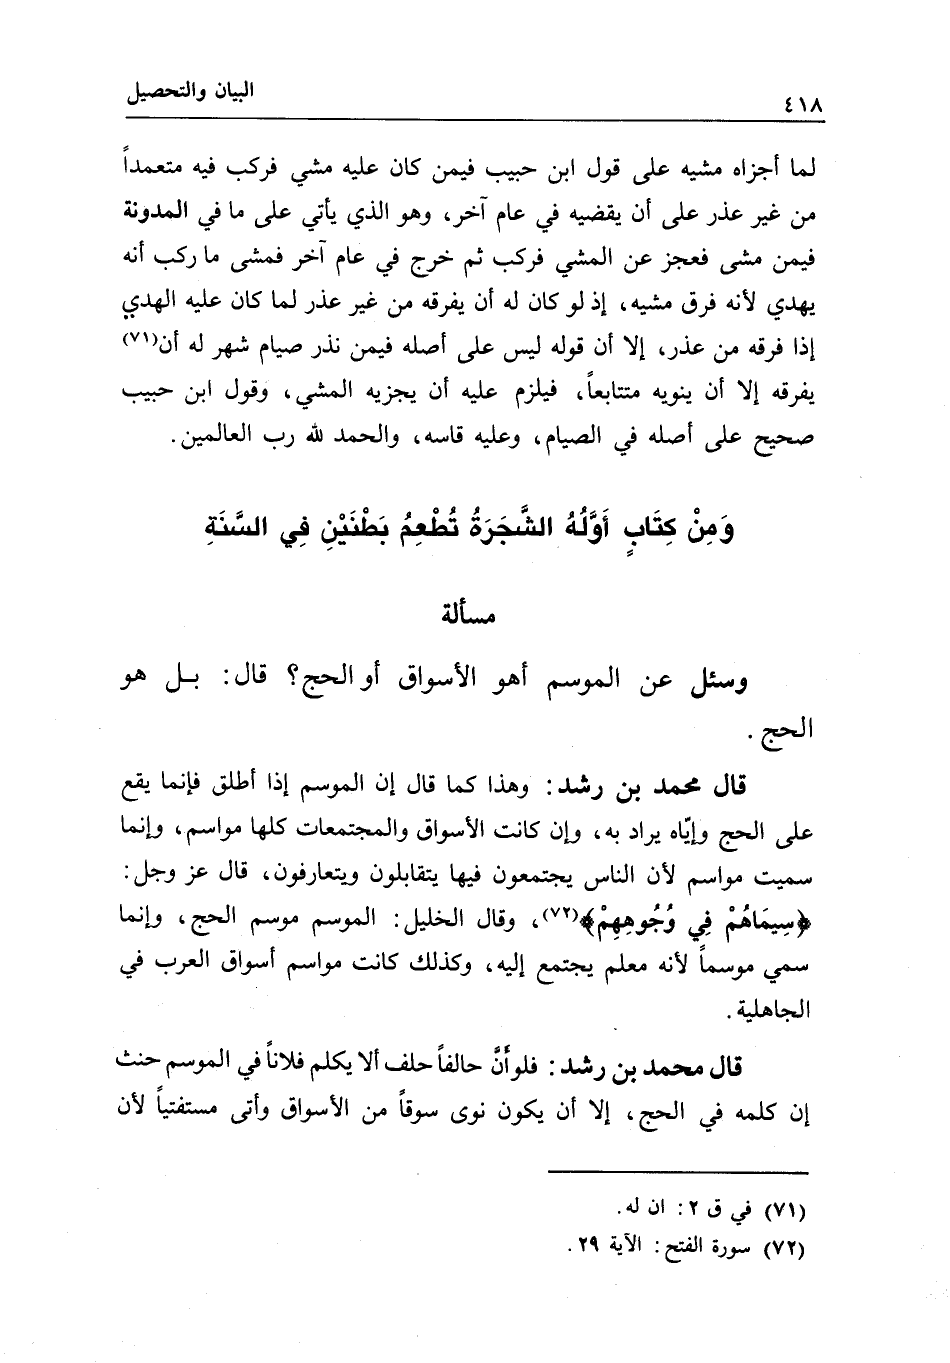 ٤١٨ البيان والتحصيل
لما أجزاه مشيه على قول ابن حبيب فيمن كان عليه مشي فركب فيه متعمداً
من غير عذر على أن يقضيه في عام آخر، وهو الذي يأتي على ما في المدونة
فيمن مشى فعجز عن المشي فركب ثم خرج في عام آخر فمشى ما ركب أنه
يهدي لأنه فرق مشيه، إذ لو كان له أن يفرقه من غير عذر لما كان عليه الهدي
إذا فرقه من عذر، إلا أن قوله ليس على أصله فيمن نذر صيام شهر له أن(٧١)
يفرقه إلا أن ينويه متتابعاً، فيلزم عليه أن يجزيه المشي، وقول ابن حبيب
صحيح على أصله في الصيام، وعليه قاسه، والحمد لله رب العالمين.
وَمِنْ كِتَابٍ أَوَّلُهُ الشَّجَرَةُ تُطْعِمُ بَطْنَيْنِ فِي السَّنَةِ
مسألة
وسئل عن الموسم أهو الأسواق أو الحج؟ قال: بل هو
الحج.
قال محمد بن رشد: وهذا كما قال إن الموسم إذا أطلق فإنما يقع
على الحج وإيّاه يراد به، وإن كانت الأسواق والمجتمعات كلها مواسم، وإنما
سميت مواسم لأن الناس يجتمعون فيها يتقابلون ويتعارفون، قال عز وجل:
﴿سِيمَاهُمْ فِي وُجُوهِهِمْ﴾(٧٢)، وقال الخليل: الموسم موسم الحج، وإنما
سمي موسماً لأنه معلم يجتمع إليه، وكذلك كانت مواسم أسواق العرب في
الجاهلية.
قال محمد بن رشد: فلو أَنَّ حالفاً حلف ألا يكلم فلاناً في الموسم حنث
إن كلمه في الحج، إلا أن يكون نوى سوقاً من الأسواق وأتى مستفتياً لأن
(٧١) في ق ٢: ان له.
(٧٢) سورة الفتح: الآية ٢٩.